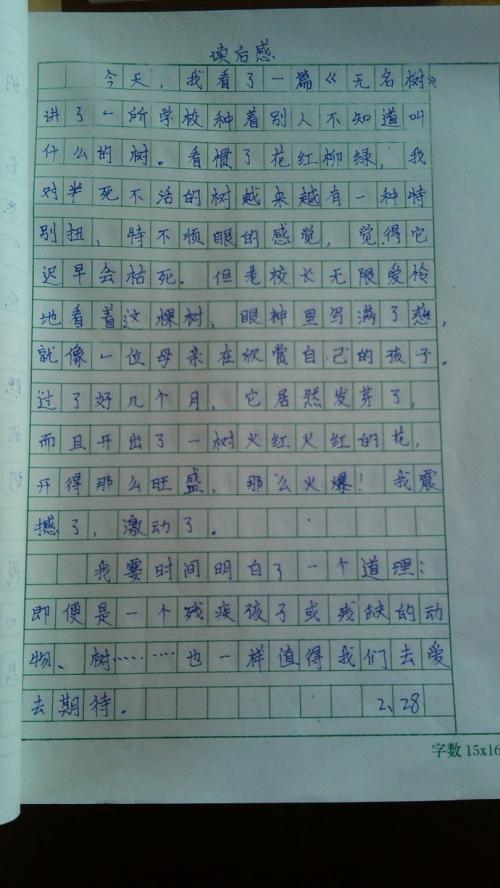 读后感
今天,我看了一篇《无名树》
讲了一所学校种着别人不知道叫
什么的树。看惯了花红柳绿,我
对半死不活的树越来越有一种特
别扭,特不顺眼的感觉,觉得它
迟早会枯死。但老校长无限爱怜
地看着这棵树,眼神里写满了慈,
就像一位母亲在欣赏自己的孩子。
过了好几个月,它居然发芽了,
而且开出了一树火红火红的花,
开得那么旺盛,那么火爆!我震
撼了,激动了。
我霎时间明白了一个道理:
即便是一个残疾孩子或残缺的动
物、树……也一样值得我们去爱
去期待。 2、28
字数15x16